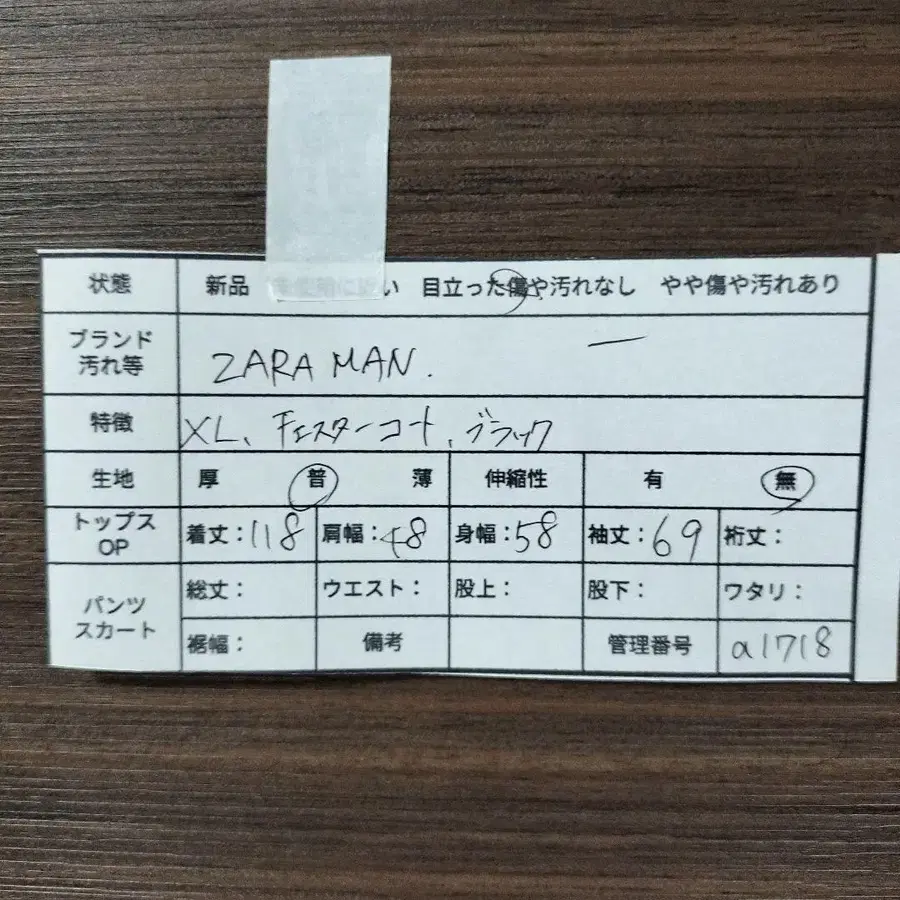 状態 新品 未使用に近い 目立った傷や汚れなし やや傷や汚れあり
ブランド
汚れ等
ZARA MAN. ー
特徴 XL、チェスターコート、ブラック
生地 厚 普 薄 伸縮性 有 無
トップス
OP
着丈:118 肩幅:48 身幅:58 袖丈:69 裄丈:
パンツ
スカート
総丈: ウエスト: 股上: 股下: ワタリ:
裾幅: 備考 管理番号 a1718